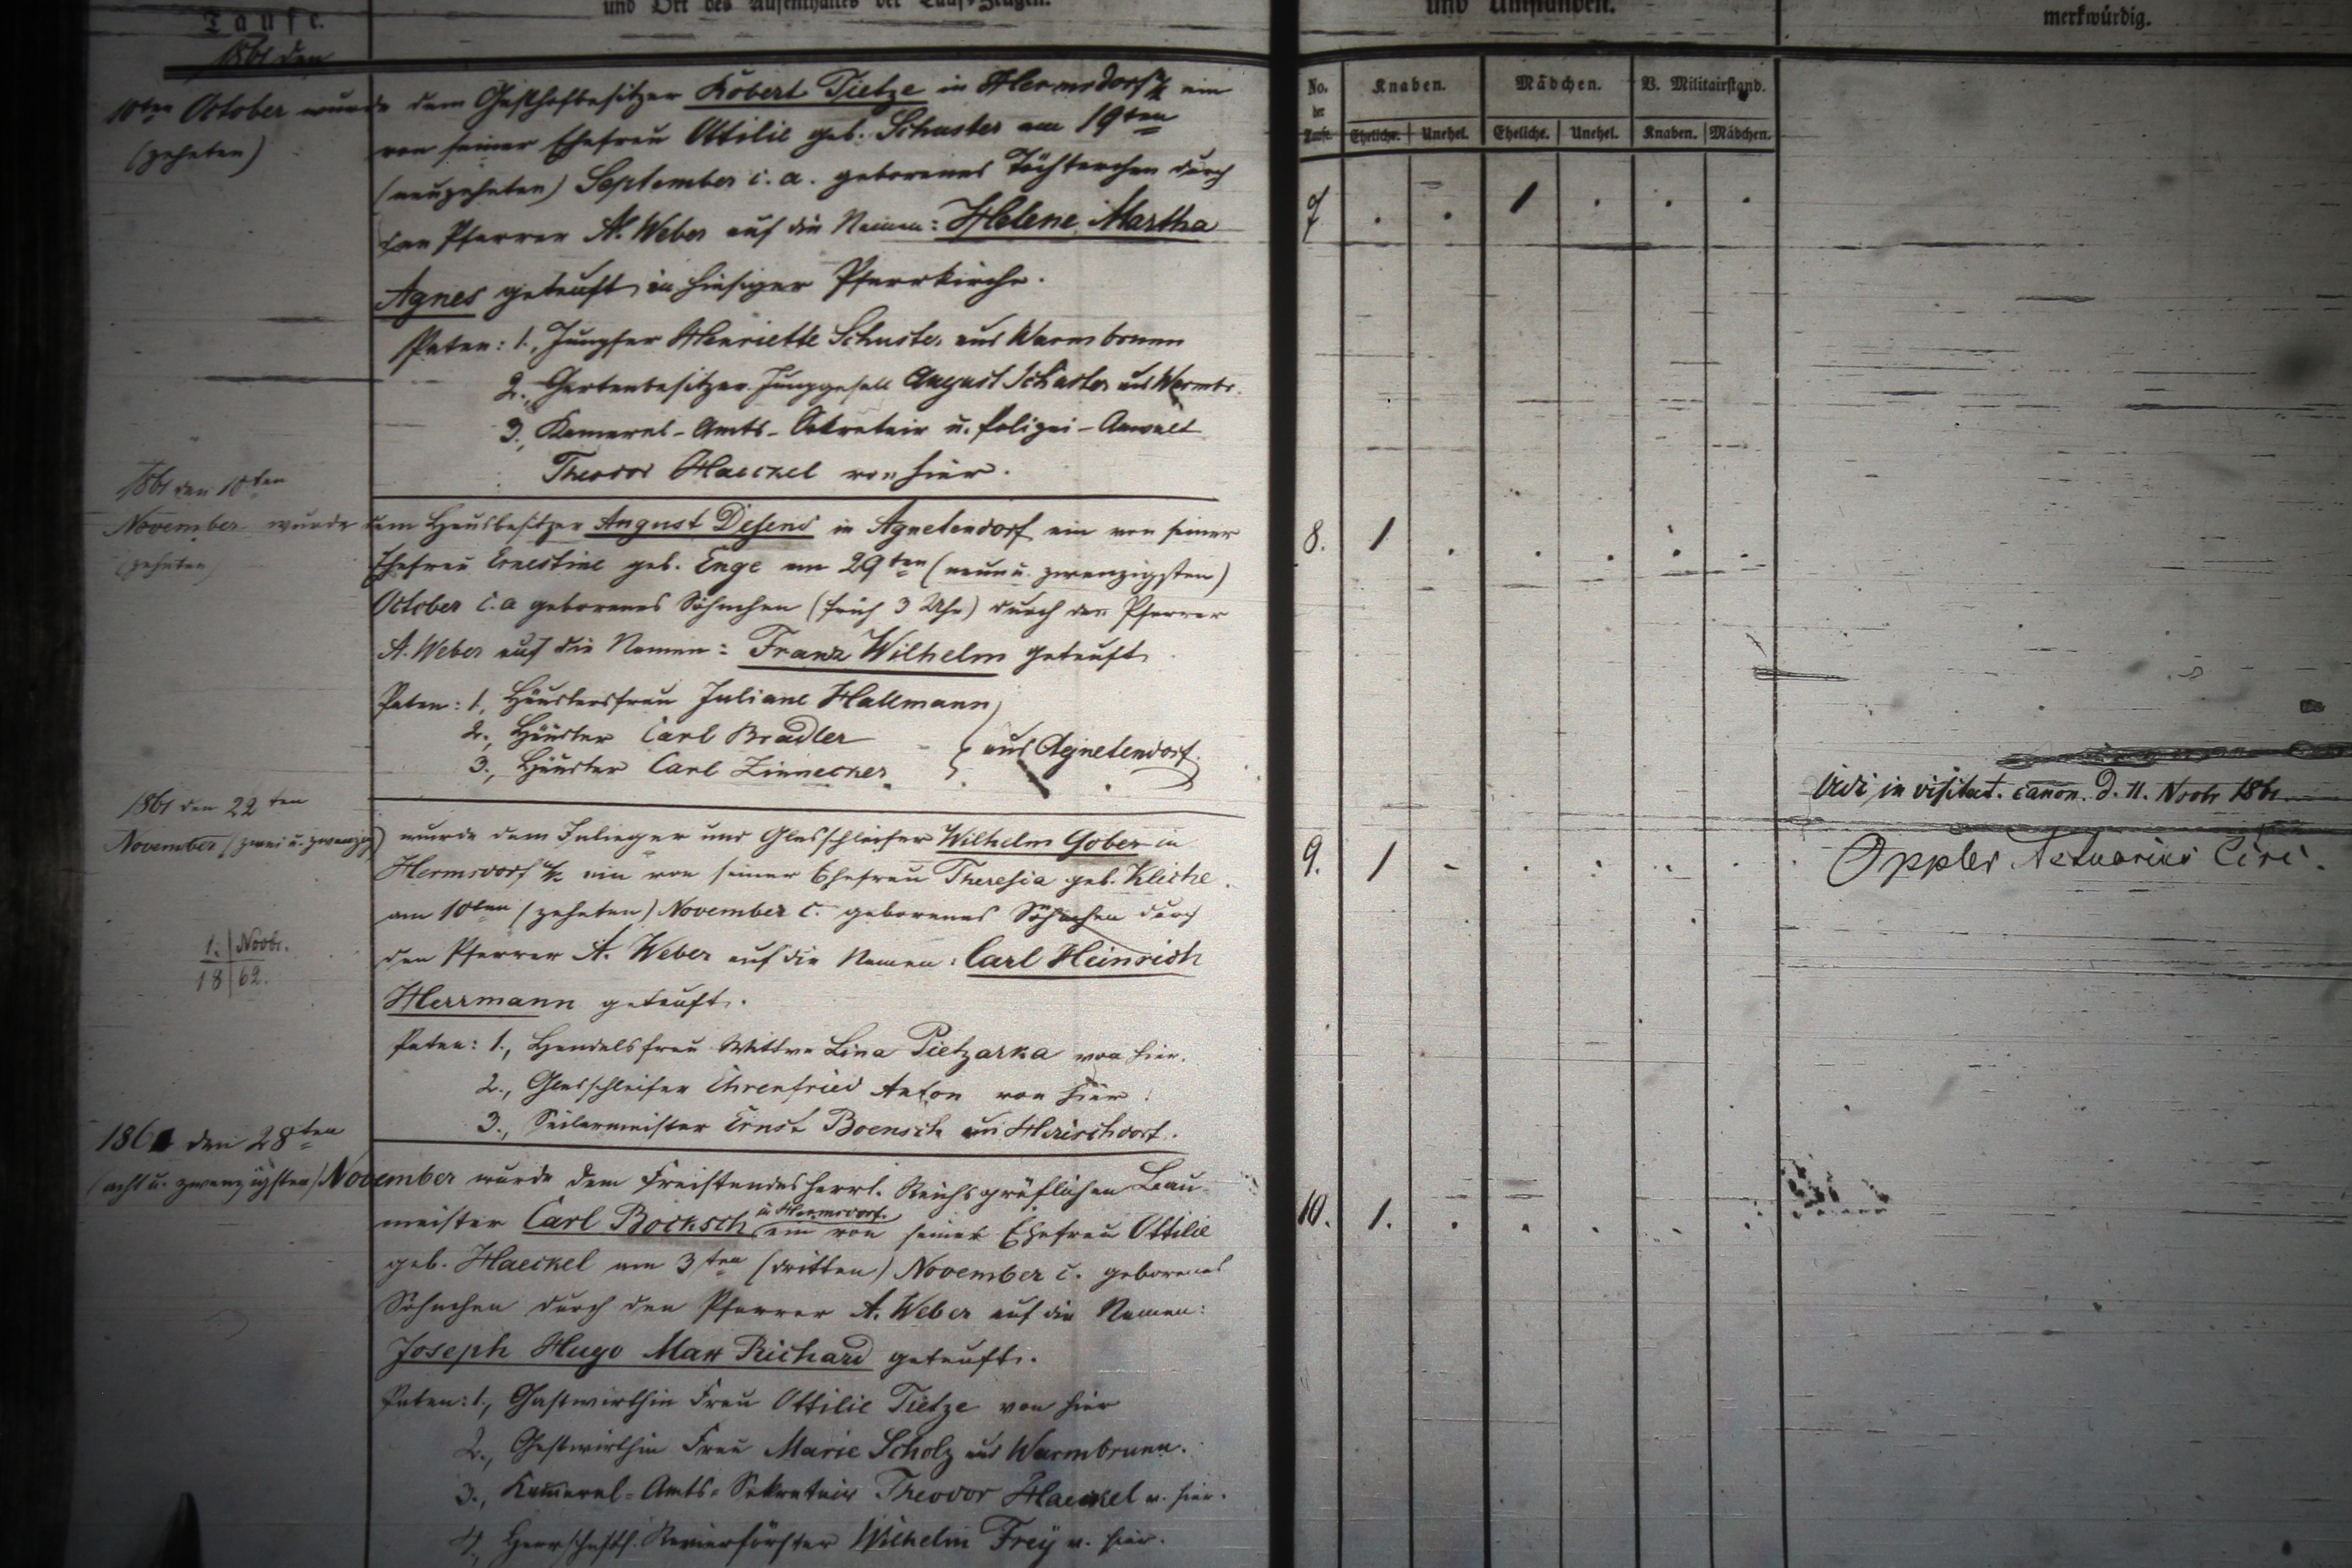 Taufe.
und Ort des Aufenthaltes der Tauf-Zeugen.
1861 den
10ten October wurde dem Gasthofbesitzer Robert Tietze in Hermsdorf u/K ein
(zehnten) von seiner Ehefrau Ottilie geb. Schuster am 19ten
(neunzehnten) September c. a. geborenes Töchterchen durch
den Pfarrer A. Weber auf die Namen: Helene Martha
Agnes getauft in hiesiger Pfarrkirche.
Paten: 1., Jungfer Henriette Schuster aus Warmbrunn
2., Gartenbesitzer Junggesell August Schuster aus Warmbr.
3., Kameral-Amts-Sekretair u. Polizei-Anwalt
Theodor Haeckel von hier.
1861 den 10ten
November wurde dem Hausbesitzer August Desens in Agnetendorf ein von seiner
(zehnten) Ehefrau Ernestine geb. Enge am 29ten (neun u. zwanzigsten)
October c. a geborenes Söhnchen (früh 3 Uhr) durch den Pfarrer
A. Weber auf die Namen: Franz Wilhelm getauft
Paten: 1, Häuslersfrau Juliane Hallmann
2., Häusler Carl Bradler
aus Agnetendorf.
3., Häusler Carl Zinnecker
1861 den 22ten
November (zwei u. zwanzig) wurde dem Inlieger und Glasschleifer Wilhelm Gober in
Hermsdorf u/K ein von seiner Ehefrau Theresia geb. Kliche
am 10ten (zehnten) November c. geborenes Söhnchen durch
den Pfarrer A. Weber auf die Namen: Carl Heinrich
1. Novbr.
18 62.
Herrmann getauft.
Paten: 1., Handelsfrau Wittwe Lina Pietzarka von hier.
2., Glasschleifer Ehrenfried Anton von hier.
3., Seilermeister Ernst Boensch
1861 den 28ten
(acht u. zwanzigsten) November wurde dem Freistandesherrl. Reichsgräflichen Bau-
meister Carl Bocksch in Hermsdorf. ein von seiner Ehefrau Ottilie
geb. Haeckel am 3ten (dritten) November c. geborenes
Söhnchen durch den Pfarrer A. Weber auf die Namen:
Joseph Hugo Max Richard getauft.
Paten: 1., Gastwirthin Frau Ottilie Tietze von hier
2., Gastwirthin Frau Marie Scholz aus Warmbrunn.
3., Kameral-Amts-Sekretair Theodor Haeckel v. hier.
4., Herrschaftl. Revierförster Wilhelm Frey v. hier.
und Umständen.
merkwürdig.
No. der Taufe.
Knaben.
Mädchen.
B. Militairstand.
Eheliche. Unehel. Eheliche. Unehel. Knaben. Mädchen.
7 . . 1 . . .
8. 1 . . . . .
Vidi in visitat. canon. d. 11. Novbr 1861
Oppler Actuarius Circ.
9. 1 - . . . .
10. 1. . . . . .